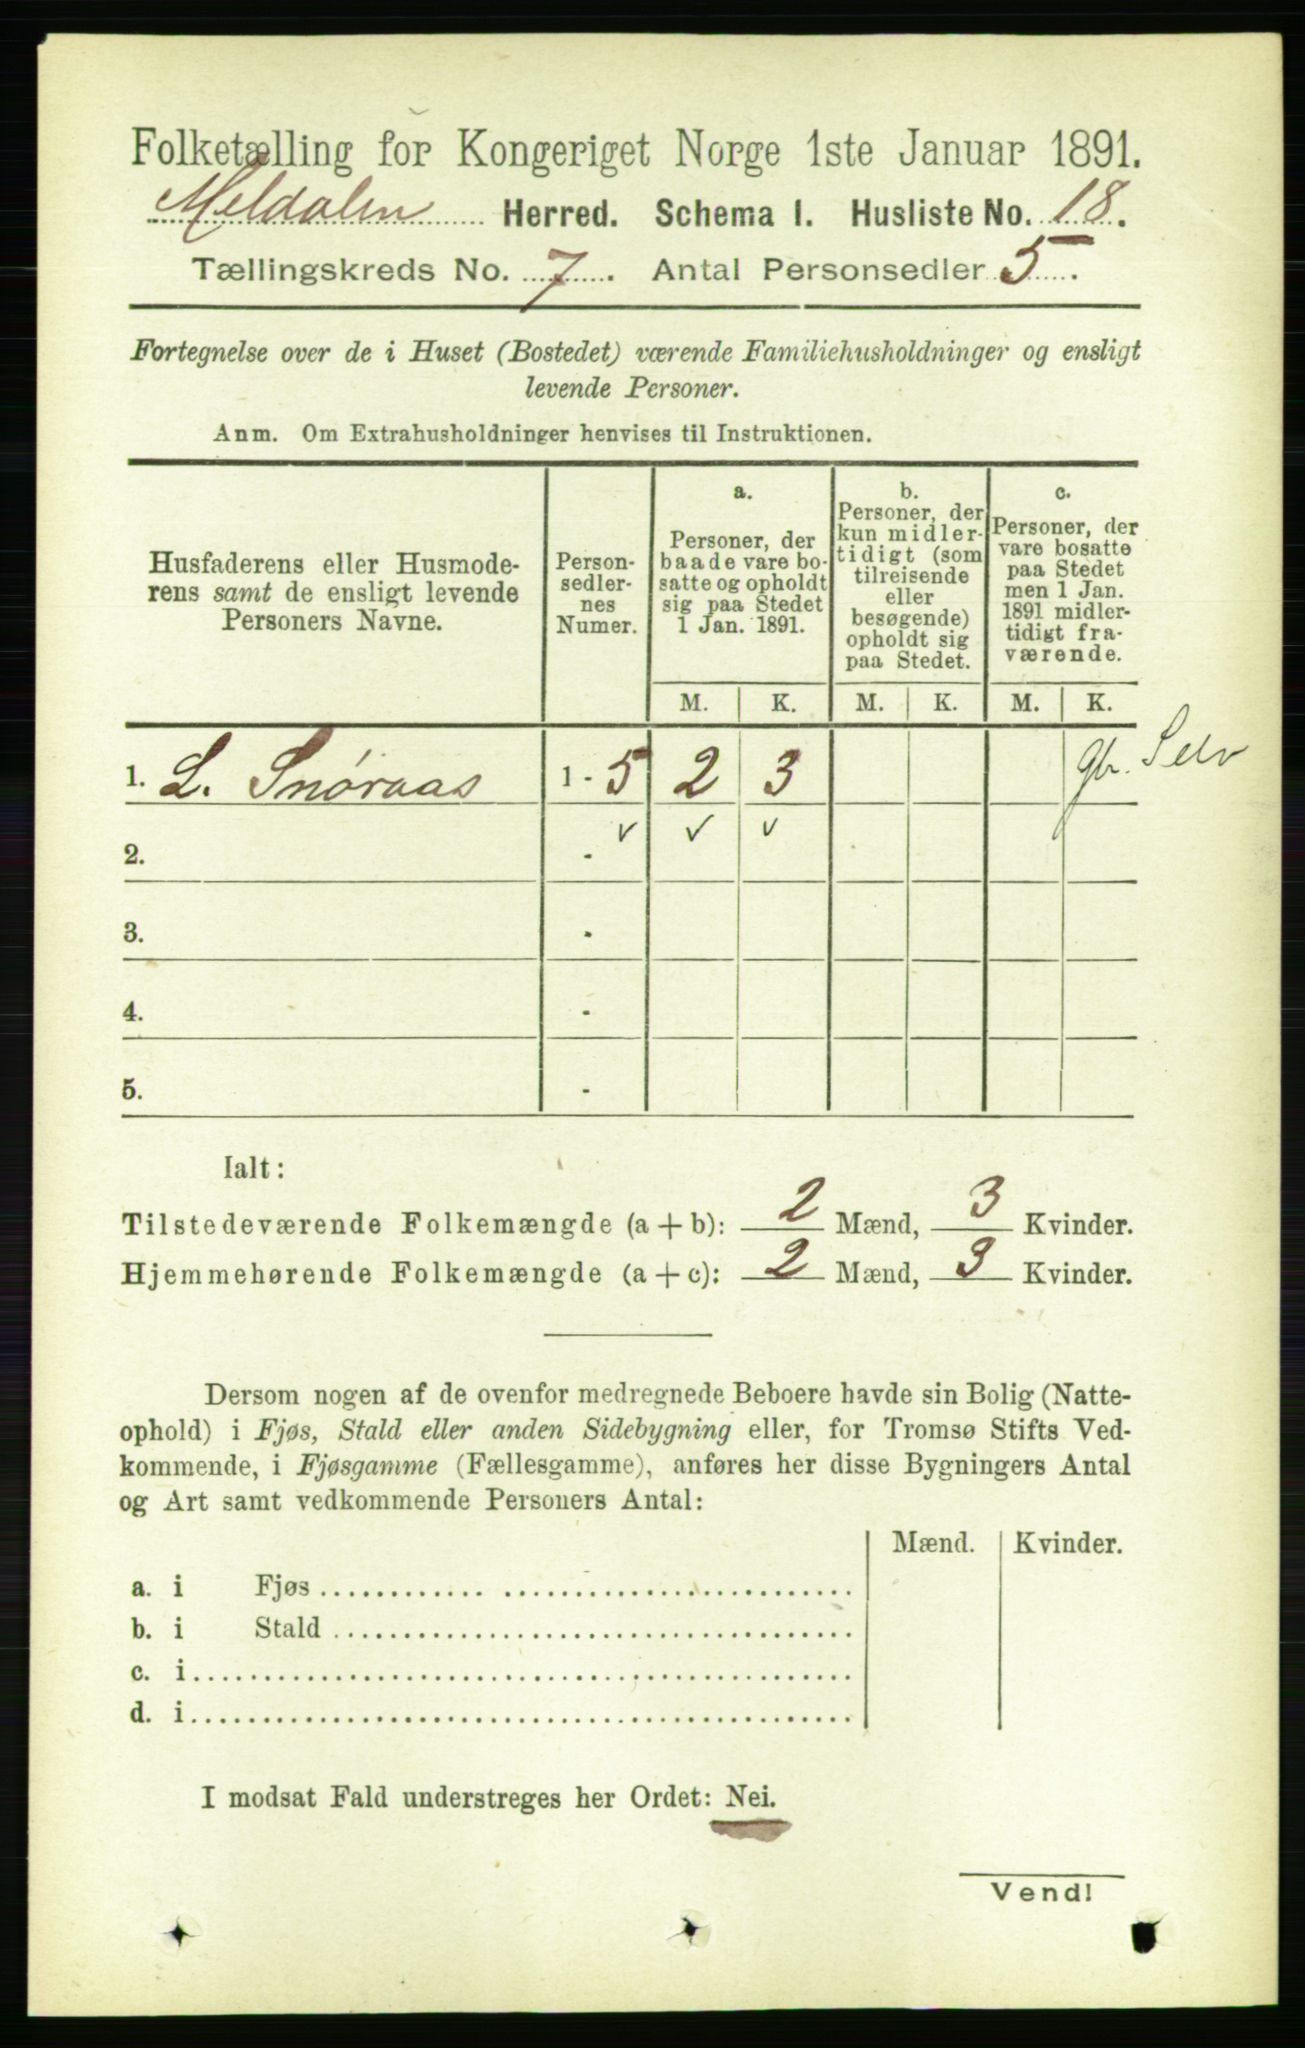 Folketælling for Kongeriget Norge 1ste Januar 1891.
Meldalen Herred. Schema I. Husliste No. 18.
Tællingskreds No. 7. Antal Personsedler 5.
Fortegnelse over de i Huset (Bostedet) værende Familiehusholdninger og ensligt
levende Personer.
Anm. Om Extrahusholdninger henvises til Instruktionen.
Husfaderens eller Husmode-
rens samt de ensligt levende
Personers Navne.
Person-
sedler-
nes
Numer.
a.
Personer, der
baade vare bo-
satte og opholdt
sig paa Stedet
1 Jan. 1891.
b.
Personer, der
kun midler-
tidigt (som
tilreisende
eller
besøgende)
opholdt sig
paa Stedet.
c.
Personer, der
vare bosatte
paa Stedet
men 1 Jan.
1891 midler-
tidigt fra-
værende.
M. K. M. K. M. K.
1. L. Snøraas 1 - 5 2 3 gbr. Selv
✓ ✓ ✓
2. -
3. -
4. -
5. -
Ialt:
Tilstedeværende Folkemængde (a + b): 2 Mænd, 3 Kvinder.
Hjemmehørende Folkemængde (a + c): 2 Mænd, 3 Kvinder.
Dersom nogen af de ovenfor medregnede Beboere havde sin Bolig (Natte-
ophold) i Fjøs, Stald eller anden Sidebygning eller, for Tromsø Stifts Ved-
kommende, i Fjøsgamme (Fællesgamme), anføres her disse Bygningers Antal
og Art samt vedkommende Personers Antal:
Mænd. Kvinder.
a. i Fjøs
b. i Stald
c. i
d. i
I modsat Fald understreges her Ordet: Nei.
Vend!